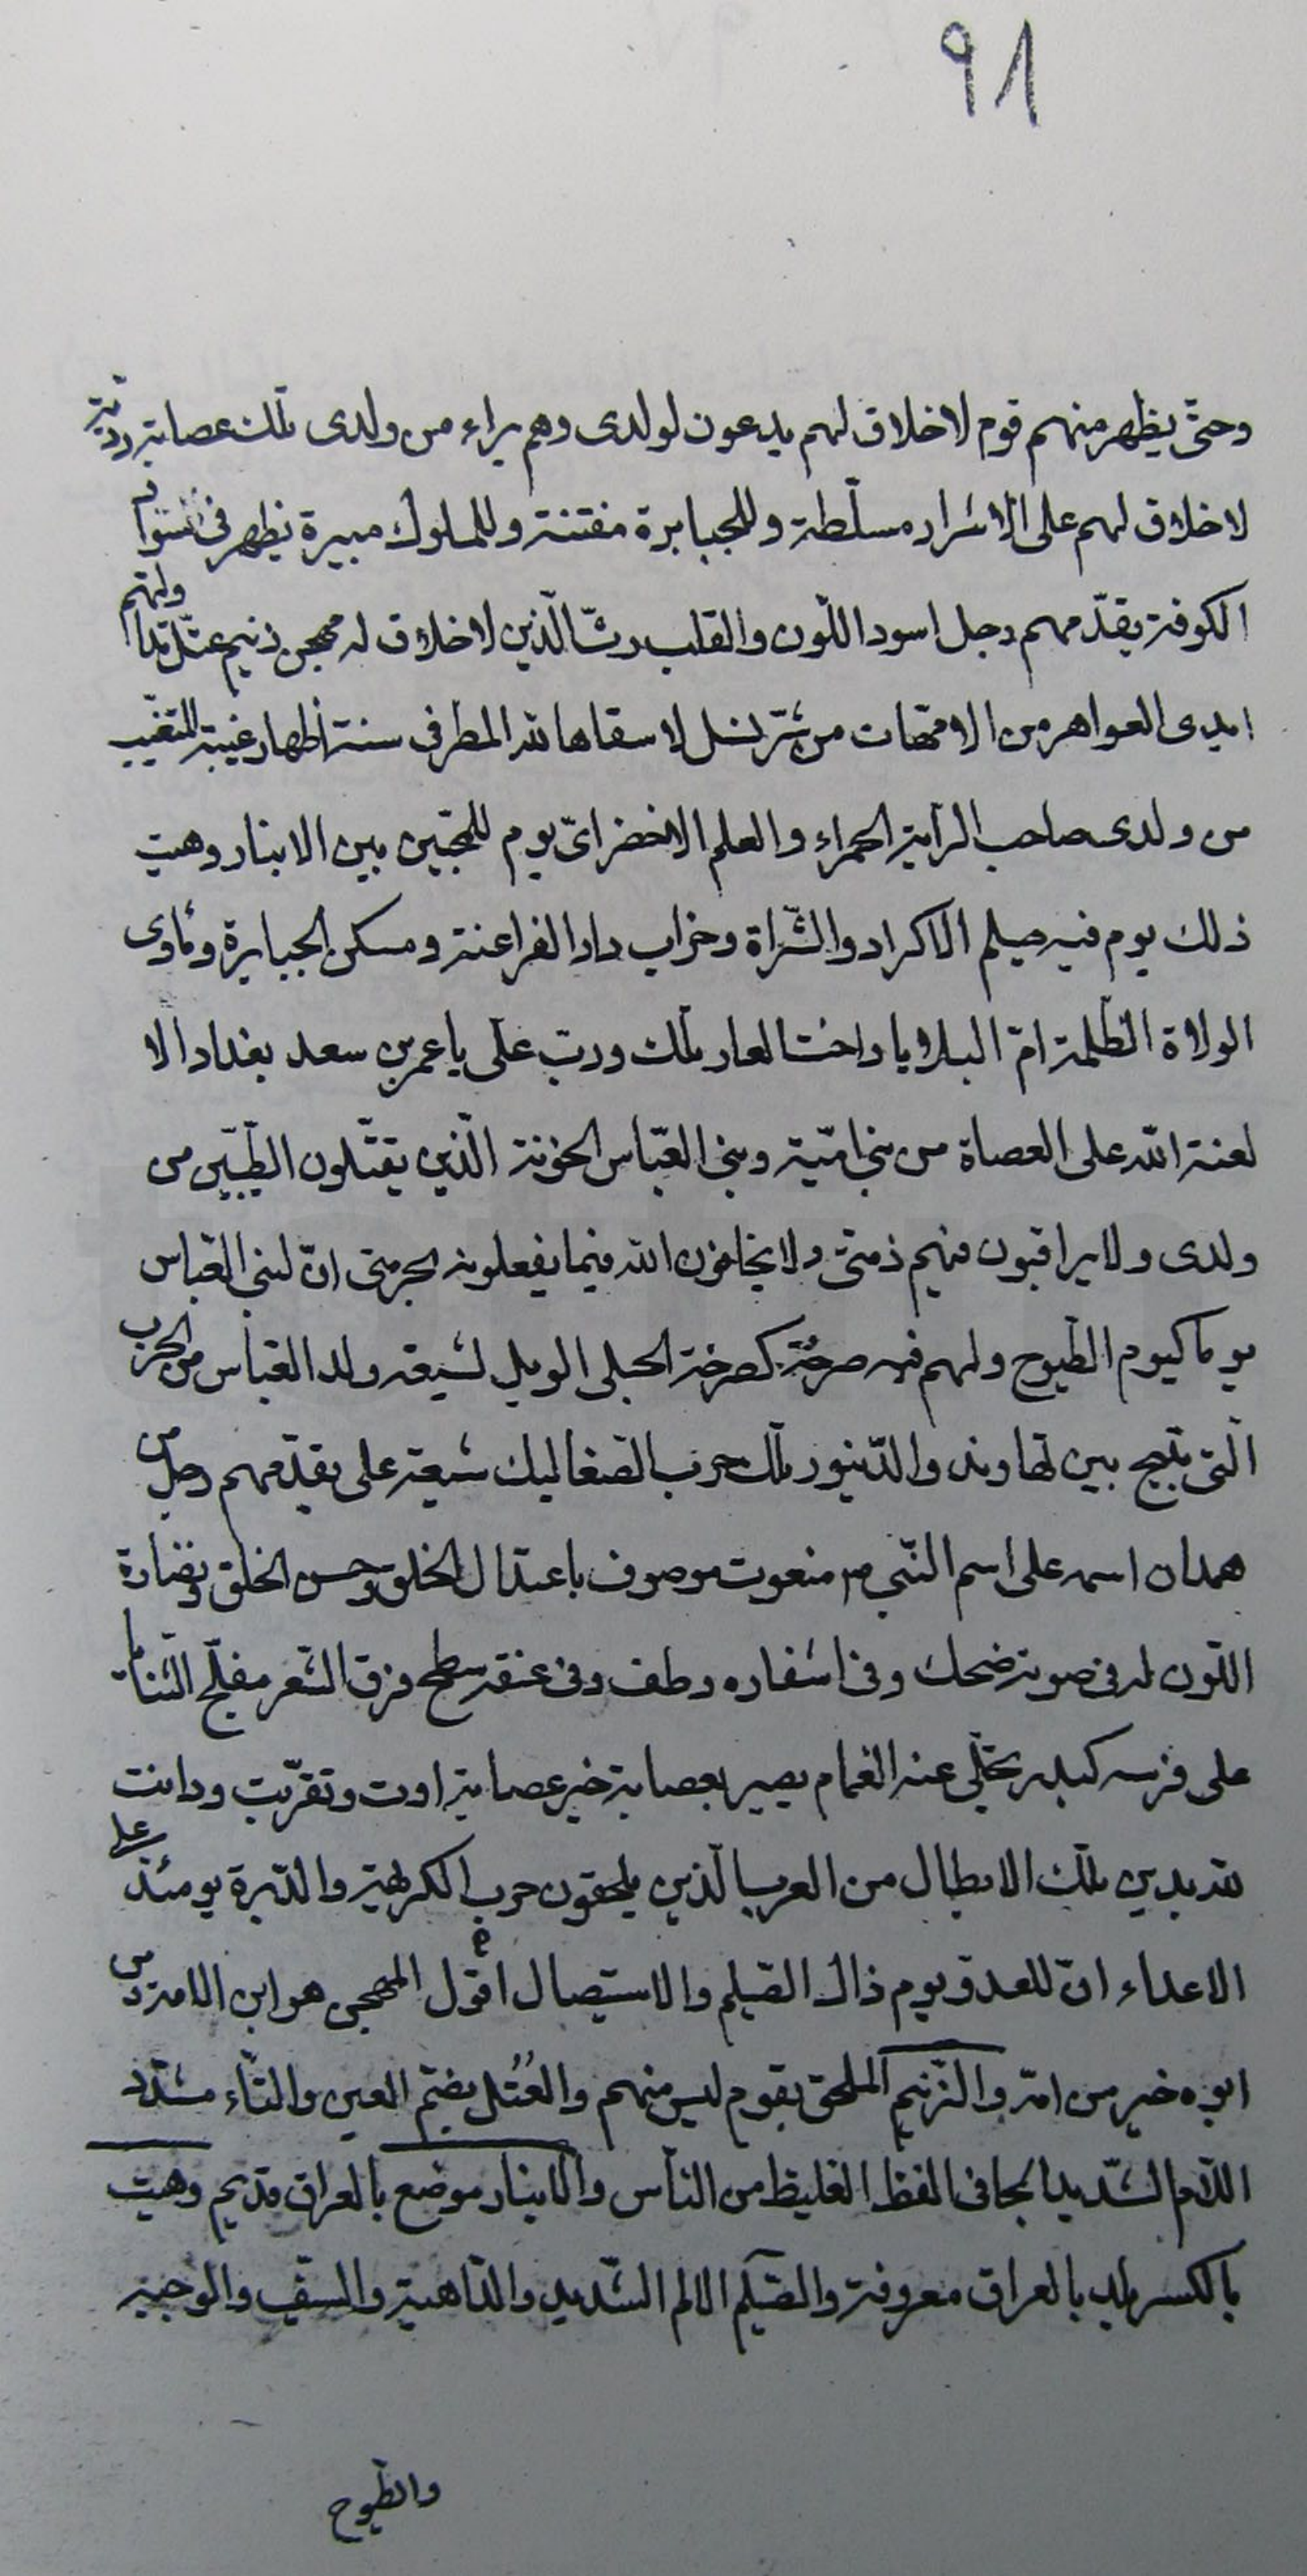 ٩٨
وحتّى يظهر منهم قوم لا خلاق لهم يدعون لولدى وهم براء من ولدى تلك عصابة رديّة
لا خلاق لهم على الاشرار مسلّطة وللجبابرة مفتنة وللملوك مبيرة يظهر فى سواد
الكوفة يقدّمهم رجل اسود اللّون والقلب رثّ الّذين لا خلاق له مهجن زنيم عتلّ تداولتهم
ايدى العواهر من الامّهات من شرّ نسل لا سقاها الله المطر فى سنة اظهار غيبة المتغيّب
من ولدى صاحب الراية الحمراء والعلم الاخضر اىّ يوم للمخبّين بين الانبار وهيت
ذلك يوم فيه صيلم الاكراد والشّراة وخراب دار الفراعنة ومسكن الجبابرة وماوى
الولاة الظّلمة امّ البلايا واخت العار تلك وربّ على يا عمر بن سعد بغداد الا
لعنة الله على العصاة من بنى اميّة وبنى العبّاس الخونة الّذين يقتّلون الطيّبين من
ولدى ولا يراقبون فيهم ذمتى ولا يخافون الله فيما يفعلونه بحرمتى انّ لبنى العباس
يوما كيوم الطّيوح ولهم فيه صرخة كصرخة الحبلى الويل لشيعة ولد العباس من الحرب
الّتى تنتج بين نهاوند والدّينور تلك حرب الصّعاليك شيعة على يقدّمهم رجل من
همدان اسمه على اسم النّبى ص منعوت موصوف باعتدال الخلق وحسن الخلق ونضارة
اللّون له فى صوته ضحك وفى اشفاره وطف وفى عنقه سطح فرق الشّعر مفلّج الثّنايا
على فرسه كبدر تجلّى عنه الغمام يسير بعصابة خير عصابة اوت وتقرّبت ودانت
لله بدين تلك الابطال من العرب الّذين يلحقون حرب الكريهة والدّبرة يومئذ على
الاعداء انّ للعدوّ يوم ذاك الصّيلم والاستيصال اقول المهجن هو ابن الامة من
ابوه خير من امّه والزّنيم الملحق بقوم ليس منهم والعُتُل بضمّ العين والتّاء مشدّد
اللّام الشّديد الجافى الفظّ الغليظ من النّاس والانبار موضع بالعراق قديم وهيت
بالكسر بلد بالعراق معروفة والصّيلم الالم الشّديد والدّاهية والسّيف والوجبه
والطّيوح